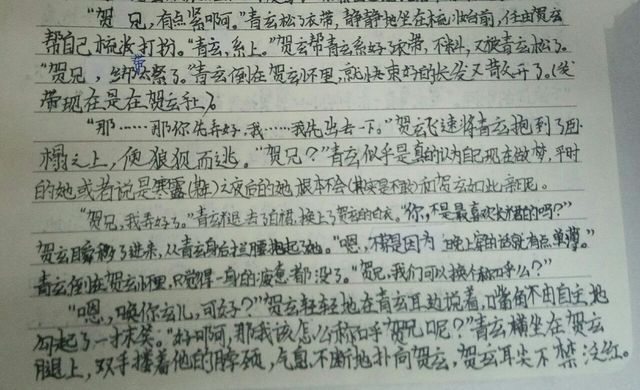 “贺兄,有点紧啊。”青玄松了衣带,静静地坐在梳妆台前,任由贺玄
帮自己梳妆打扮。“青玄,系上。”贺玄帮青玄系好了衣带,不料,又被青玄松了。
“贺兄,绑太紧了。”青玄倒在贺玄怀里,就快束好的长发又散开了。(发
带现在是在贺玄手上)。
“那……那你先弄好,我……我先出去一下。”贺玄飞速将青玄抱到了
榻之上,便狼狈而逃。“贺兄?”青玄似乎是真的认为自己现在做梦,平时
的她或者说是寒露之夜后的她,根本不会(其实是不敢)和贺玄如此亲昵。
“贺兄,我弄好了。”青玄褪去了白褶,换上了贺玄的白衣。“你,不是最喜欢的吗?”
贺玄瞬移了进来,从青玄身后拦腰抱起了她。“嗯,不是因为晚上穿的话就有点单薄。”
青玄倒在贺玄怀里,只觉得一身的疲惫都没了。“贺兄,我们可以换个称呼么?”
“嗯,唤你玄儿,可好?”贺玄轻轻地在青玄耳边说着,嘴角不由自主地
勾起了一抹笑。“好啊,那我该怎么称呼贺兄呢?”青玄横坐在贺玄
腿上,双手搂着他的脖颈,气息不断地扑向贺玄,贺玄耳尖不禁泛红。